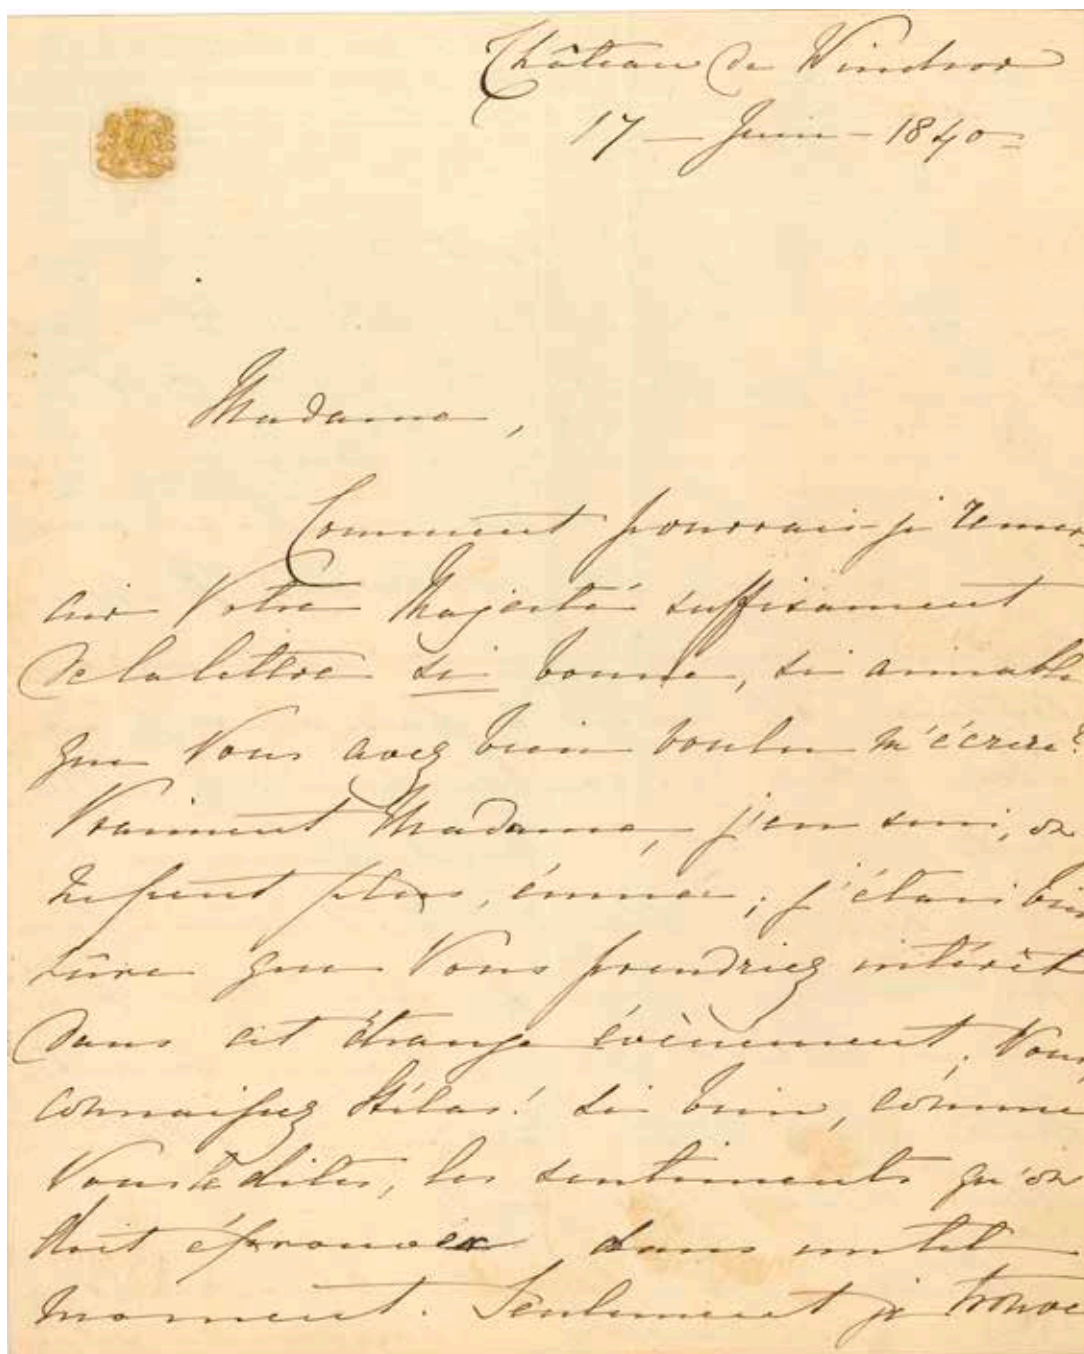 Château de Windsor
17 – Juin – 1840
Madame,
Comment pourrais-je remer-
cier Votre Majesté suffisament
de la lettre si bonne, si aimable
que Vous avez bien voulu m'écrire?
Vraiment Madame, j'en suis, on
ne peut plus, émue; j'étais bien
sûre que Vous prendriez intérêt
dans cet étrange évènement, Vous
connaissez Hélas! si bien, comme
Vous le dites, les sentiments qu'on
doit éprouver dans un tel
moment. Seulement je trouve